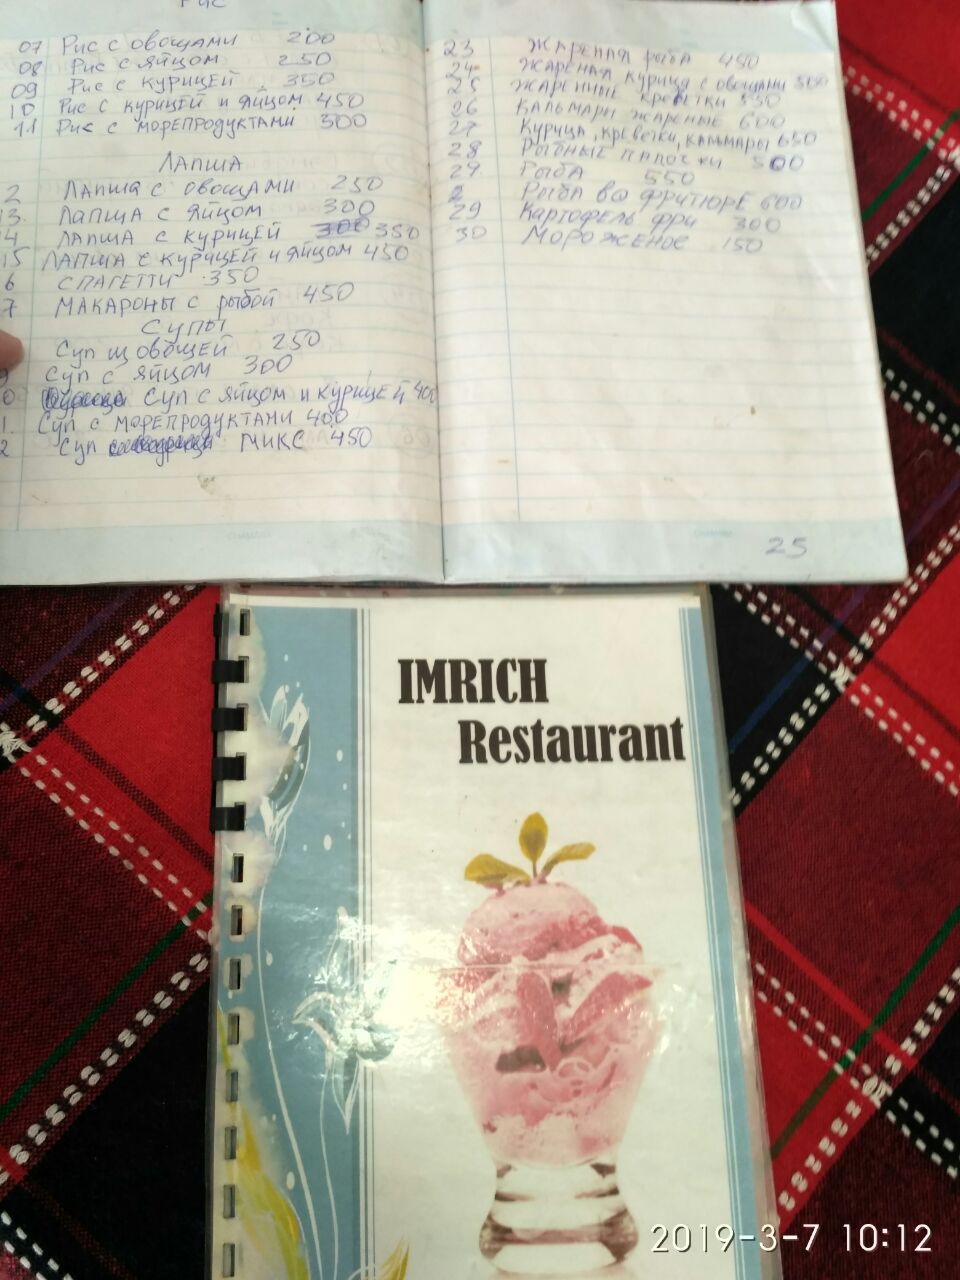 Рис
07 Рис с овощами 200
08 Рис с яйцом 250
09 Рис с курицей 350
10 Рис с курицей и яйцом 450
11 Рис с морепродуктами 300
Лапша
2 Лапша с овощами 250
13. Лапша с яйцом 300
14 Лапша с курицей 300 350
15 Лапша с курицей и яйцом 450
6 Спагетти 350
7 Макароны с рыбой 450
Супы
Суп щ овощей 250
9 Суп с яйцом 300
0 Суп с яйцом и курицей 400
1. Суп с морепродуктами 400
2 Суп микс 450
23 Жареная рыба 450
24 Жареная курица с овощами 500
25 Жаренные креветки 550
26 Кальмары жареные 600
27 Курица, креветки, кальмары 650
28 Рыбные палочки 500
29 Рыба 550
2 Рыба во фритюре 600
29 Картофель фри 300
30 Мороженое 150
25
IMRICH
Restaurant
2019-3-7 10:12